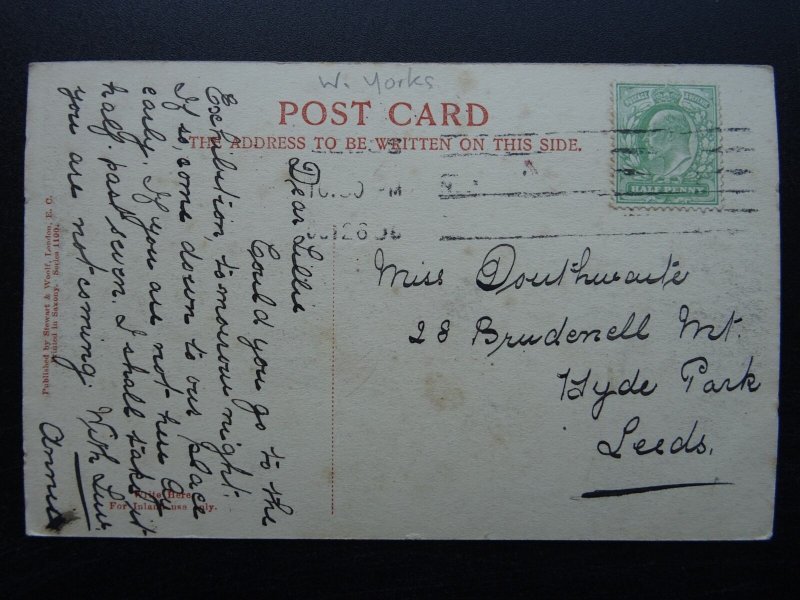 W. Yorks
POST CARD
THE ADDRESS TO BE WRITTEN ON THIS SIDE.
HALF PENNY
10.30 PM
Miss Douthwaite
28 Brudenell Mt.
Hyde Park
Leeds.
Dear Lillie
Could you go to the
Exhibition, to-morrow night.
If so, come down to our place
early. If you are not here at
half. past seven. I shall take it
you are not coming. With Love.
Annie
Write Here
For Inland use only.
Published by Stewart & Woolf, London, E. C.
Printed in Saxony. Series 1100.